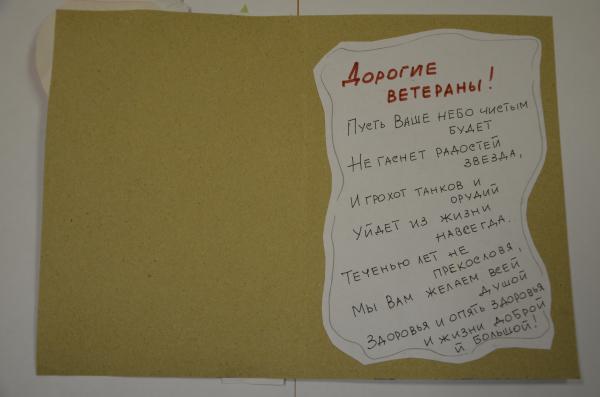 ДОРОГИЕ
ВЕТЕРАНЫ!
ПУСТЬ ВАШЕ НЕБО ЧИСТЫМ
БУДЕТ
НЕ ГАСНЕТ РАДОСТЕЙ
ЗВЕЗДА,
И ГРОХОТ ТАНКОВ И
ОРУДИЙ
УЙДЕТ ИЗ ЖИЗНИ
НАВСЕГДА.
ТЕЧЕНЬЮ ЛЕТ НЕ
ПРЕКОСЛОВЯ,
МЫ ВАМ ЖЕЛАЕМ ВСЕЙ
ДУШОЙ
ЗДОРОВЬЯ И ОПЯТЬ ЗДОРОВЬЯ
И ЖИЗНИ ДОБРОЙ
Й БОЛЬШОЙ!